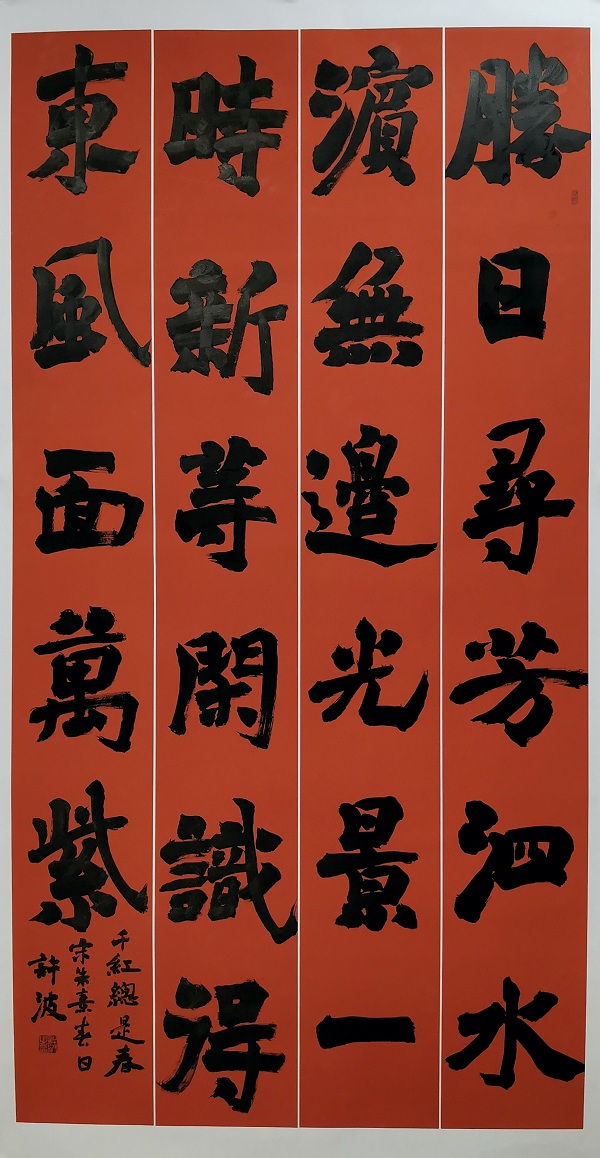 勝日尋芳泗水
濵無邊光景一
時新等閑識得
東風面萬紫
千紅總是春
宋朱熹春日
許波